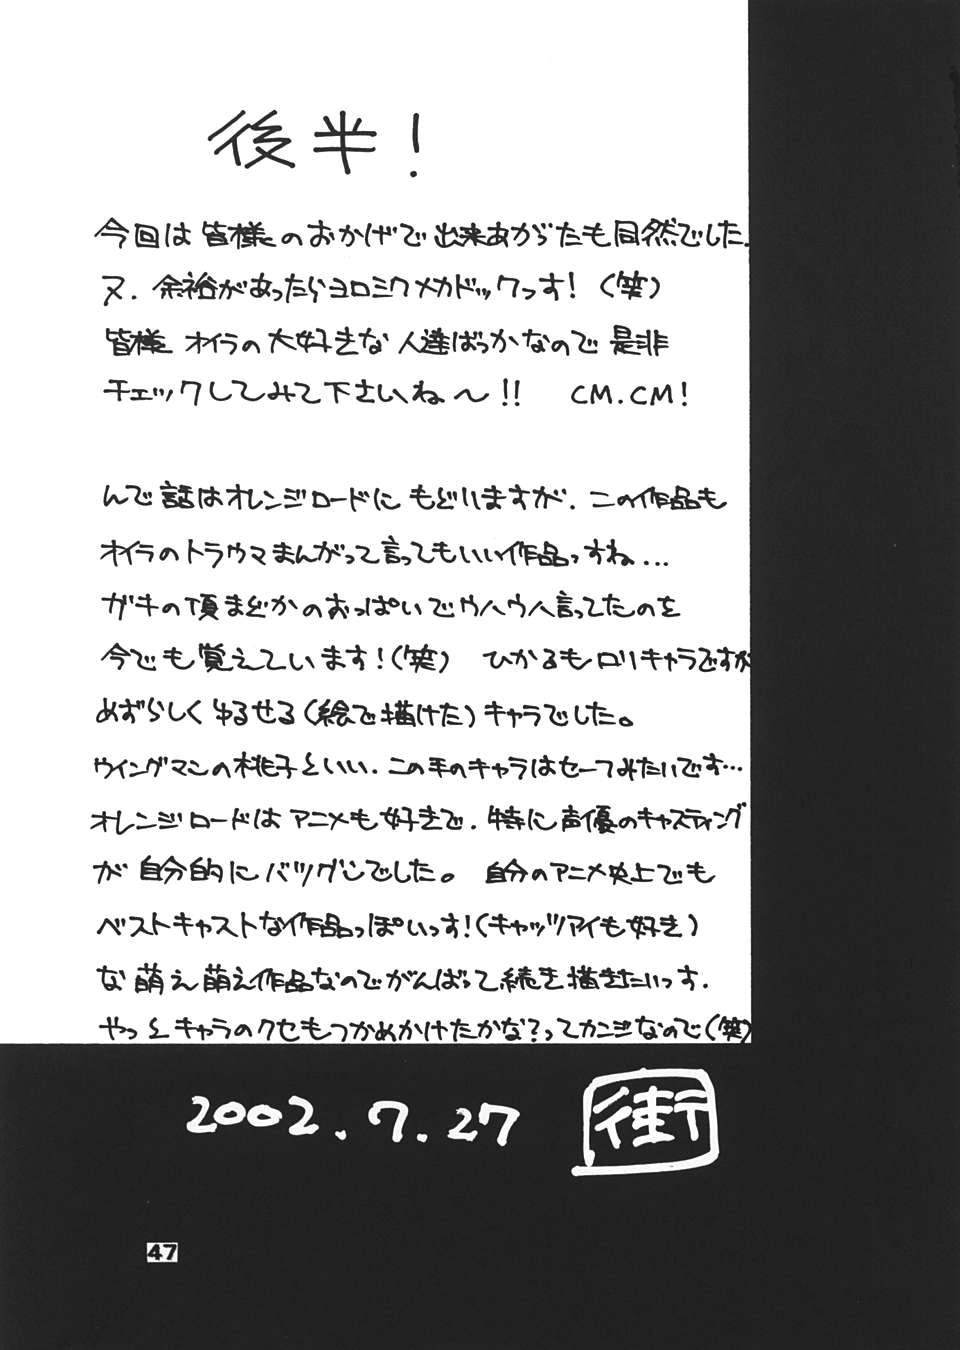 後半!
今回は皆様のおかげで出来あがったも同然でした.
又.余裕があったらヨロミクメカドックっす!(笑)
皆様 オイラの大好きな人達ばっかなので是非
チェックしてみて下さいね〜!! CM.CM!
んで話はオレンジロードにもどいますが.この作品も
オイラのトラウマまんがって言ってもいい作品っすね...
ガキの頃まどかのおっぱいでウハウハ言ってたのを
今でも覚えています!(笑) ひかるもロリキャラですが
めずらしくゆるせる(絵で描けた)キャラでした。
ウイングマンの桃子といい.この手のキャラはセーフみたいです…
オレンジロードはアニメも好きで.特に声優のキャスティング
が自分的にバツグンでした。 自分のアニメ史上でも
ベストキャストな作品っぽいっす!(キャッツアイも好き)
な萌え萌え作品なのでがんばって続き描きたいっす.
やっとキャラのクセもつかめかけたかな?ってカンジなので(笑)
2002.7.27 街
47